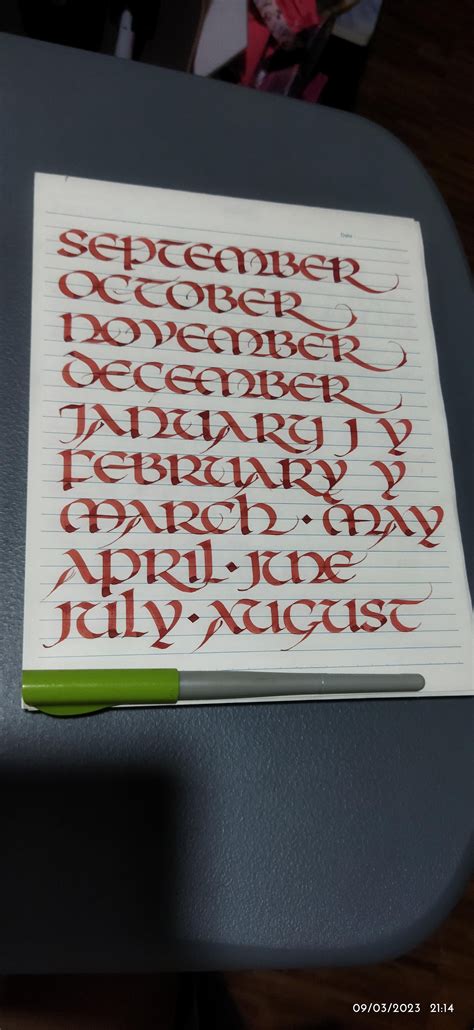 Date
SEPTEMBER
OCTOBER
NOVEMBER
DECEMBER
JANUARY J Y
FEBRUARY Y
MARCH · MAY
APRIL · JUNE
JULY · AUGUST
09/03/2023 21:14